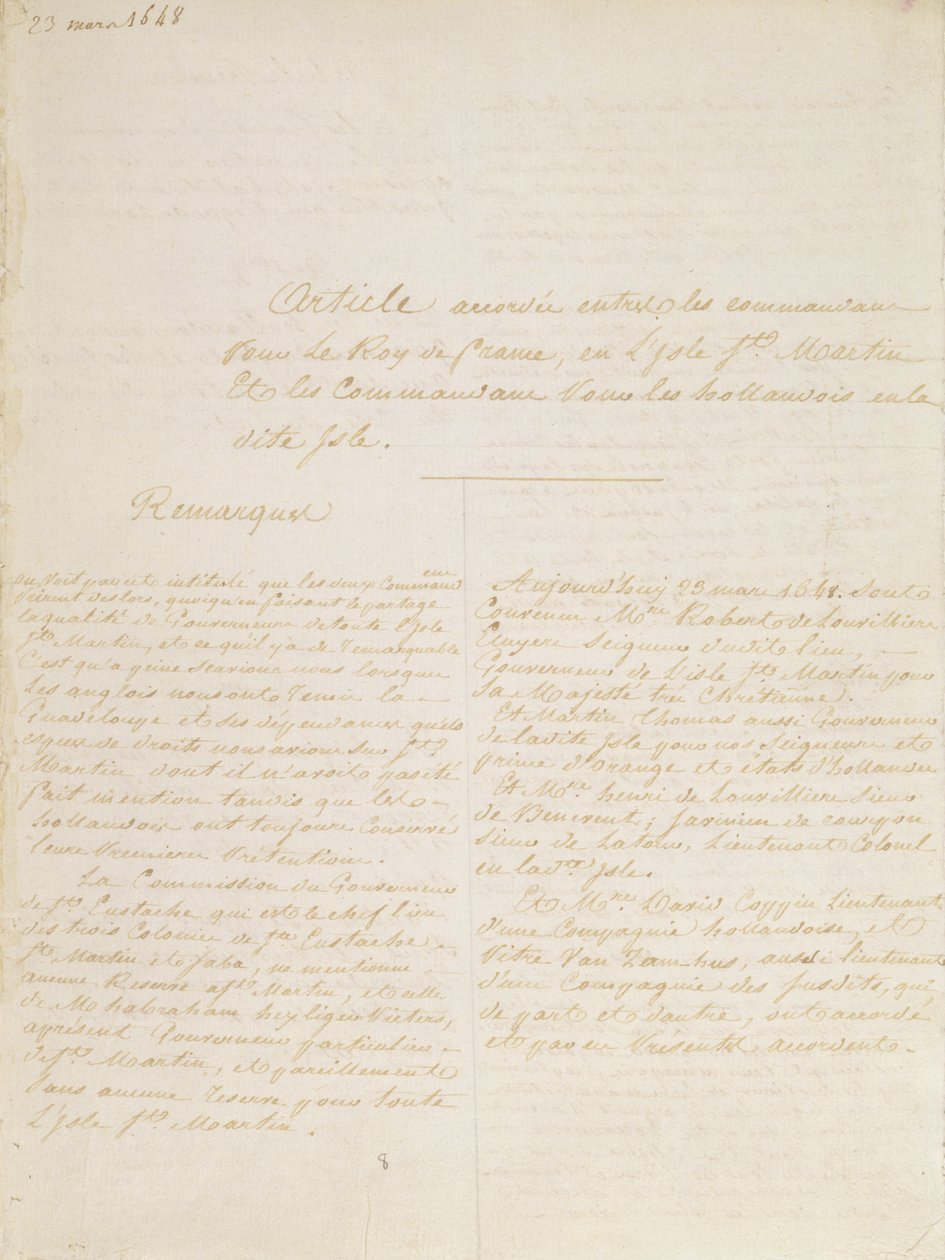 23 mars 1648
Article accordée entre les commandans
Pour Le Roy de France, en L'Isle St. Martin
Et les Commandans Pour les hollandois en la
dite Isle.
Remarques
on voit par cet intitulé que les deux Commandeurs
Prirent des lors, quoiqu'en faisant le partage
la qualité de Gouverneurs de toute l'Isle
St. Martin, et ce qu'il y a de remarquable
C'est qu'a peine scavions nous lorsque
Les anglois nous ont remis la
Guadeloupe et ses dépendances quels
especes de droits nous avions sur St.
Martin dont il n'avoit pas été
fait mention tandis que les
hollandois ont toujours Conservé
leurs Premieres Prétentions.
La Commission du Gouverneur
de St. Eustache qui est le chef lieu
des trois Colonies de St. Eustache
St. Martin et Saba, ne mentionne
aucune Reserve a St. Martin, et celle
de M habraham heyliger Pieters,
apresent Gouverneur particulier
de St. Martin, et pareillement
Sans aucune reserve pour toute
L'Isle St. Martin.
Aujourd'huy 23 mars 1648. Sont
Convenus Mre. Robert de Lonvilliers
Ecuyers Seigneur dudit lieu,
Gouverneur de L'isle St. Martin pour
Sa Majesté tres Chrétienne.
Et Martin Thomas aussi Gouverneur
de ladite Isle pour nos Seigneurs et
prince d'Orange et états d'hollandes
Et Mre. henri de Lonvilliers Sieur
de Benevent; Savinien de courpon
sieur de Latour, Lieutenant Colonel
en ladte. Isle.
Et Mre. David Coppin Lieutenant
d'une Compagnie hollandoise, et
Pitre Van Zam-hus, aussi lieutenant
d'une Compagnie des Susdits, qui
de part et d'autre, ont accordé
et par ces Présentes, accordent
8